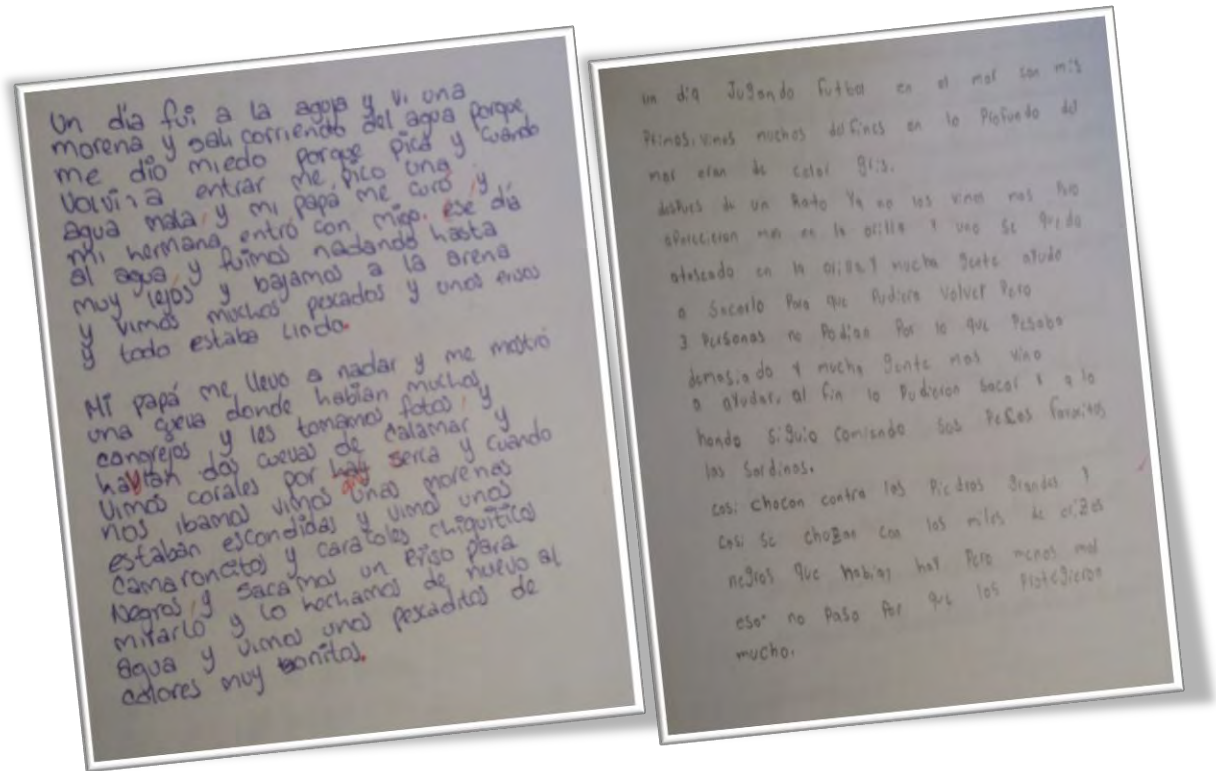 Un día fui a la aguja y vi una
morena y sali corriendo del agua porque
me dio miedo porque pica y cuando
volvi a entrar me pico una
agua mala y mi papá me curó y
mi hermana entró con migo. ese día
al agua y fuimos nadando hasta
muy lejos y bajamos a la arena
y vimos muchos pescados y unos erisos
y todo estaba lindo.
Mi papá me llevo a nadar y me mostró
una cueva donde habían muchos
congrejos y les tomamos fotos y
havían dos cuevas de calamar y
vimos corales por serca y cuando
nos ibamos vimos unas morenas
estaban escondidas y vimos unos
camaroncitos y caracoles chiquiticos
Negros y sacamos un eriso para
mirarlo y lo hechamos de nuevo al
agua y vimos unos pescaditos de
colores muy bonitos.
un día Jugando Futbol en el mar con mis
Primos, vimos muchos delfines en lo Profundo del
mar eran de color gris.
despues de un Rato Ya no los vimos mas Pero
aparecieron mas en la orilla Y uno se quedo
atascado en la orilla Y mucha gente ayudo
a Sacarlo Para que Pudiera Volver Pero
3 Personas no Podian Por lo que Pesaba
demasiado Y mucha gente mas vino
a ayudar, al fin lo Pudieron Sacar Y a lo
hondo Siguio Comiendo Sus Peces favoritos
las Sardinas.
casi chocan contra las Piedras grandes Y
casi se chocan con los miles de erizos
negros que habian hay Pero menos mal
eso no Paso Por que los Protegieron
mucho.